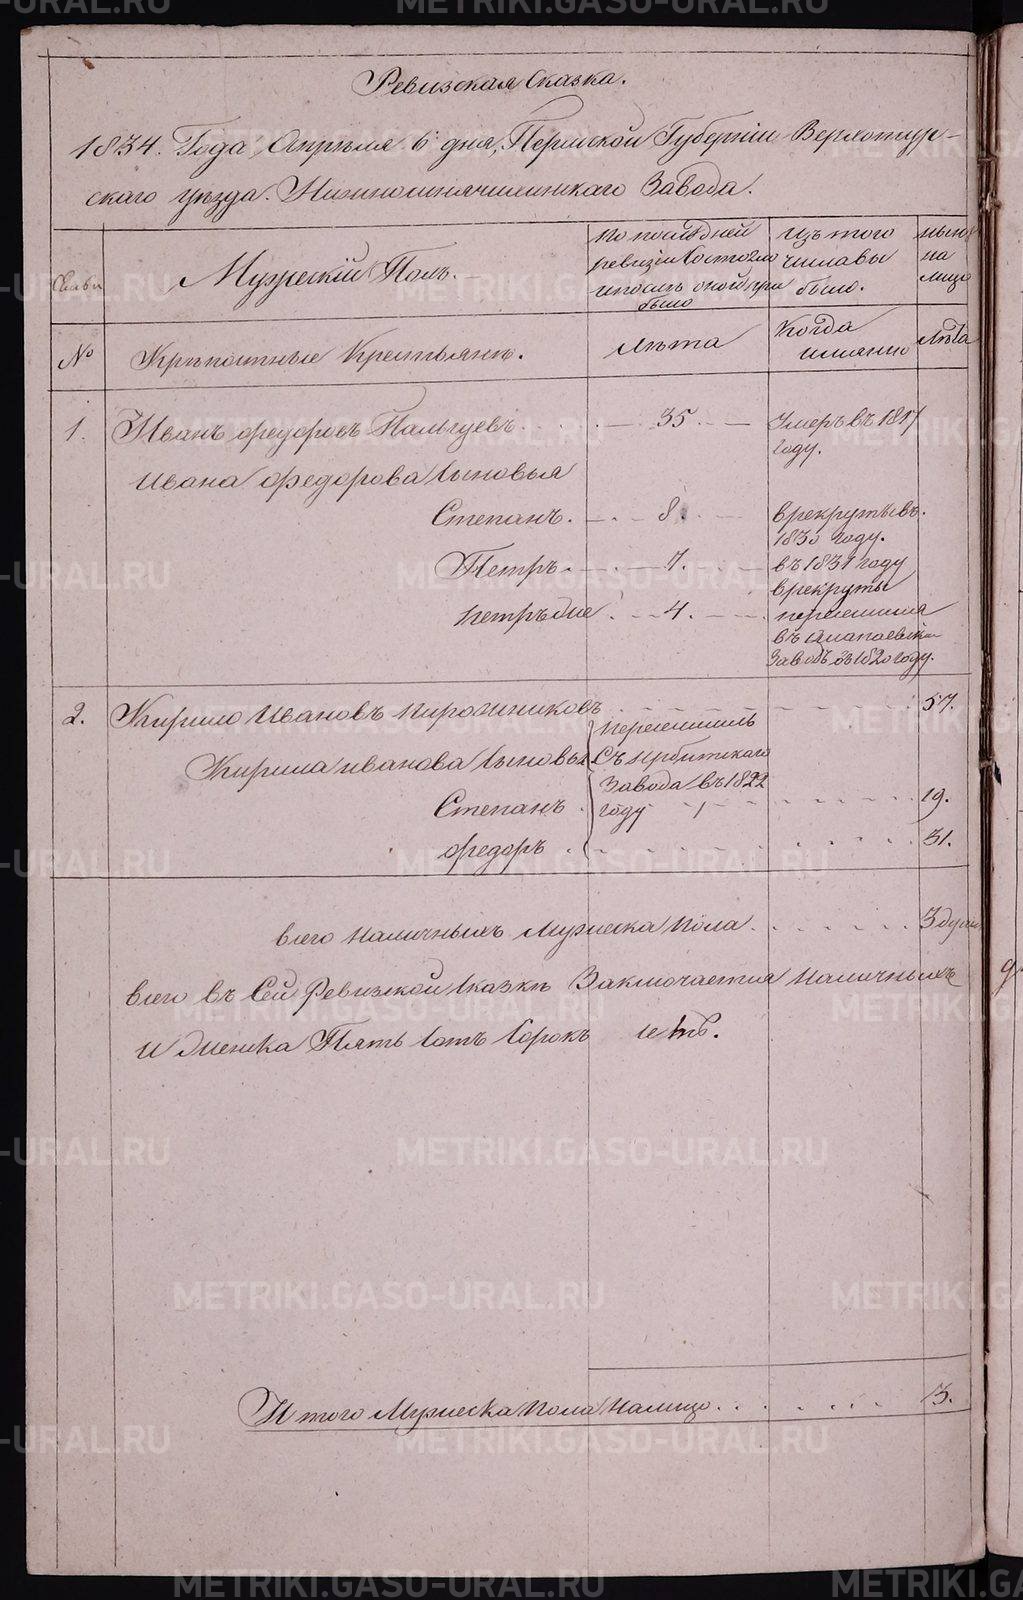 Ревизская Сказка.
1834. Года Апреля 6 дня, Пермской Губернии Верхотур-
скаго уезда. Нижносинячихинскаго Завода.
Мужеский Полъ.
По последней
ревизии Состояло
и после оной при
было
Изъ того
числа вы
было.
ныне
на
лицо
№
Крепостные Крестьяне.
Лета
Когда
именно
Лета
1. Иванъ федоровъ Пальцевъ 35 Умеръ въ 1817
году.
Ивана федорова сыновья
Степанъ. 8. в рекруты въ
1830 году.
Петръ. 7. въ 1831 году
в рекруты
петръ же 4. переселился
въ Алапаевской
Заводъ въ 1820 году.
2. Кирило Ивановъ Пирожниковъ 57.
переселились
Съ Ирбитскаго
Завода въ 1822
году
Кирила иванова сыновья
Степанъ 19.
федоръ 31.
всего наличныхъ Мужеска пола 3 души
всего въ Сей Ревизской сказке Заключается наличныхъ
и Женска Пять сотъ Сорокъ
Итого Мужеска Пола налицо 3.
METRIKI.GASO-URAL.RU